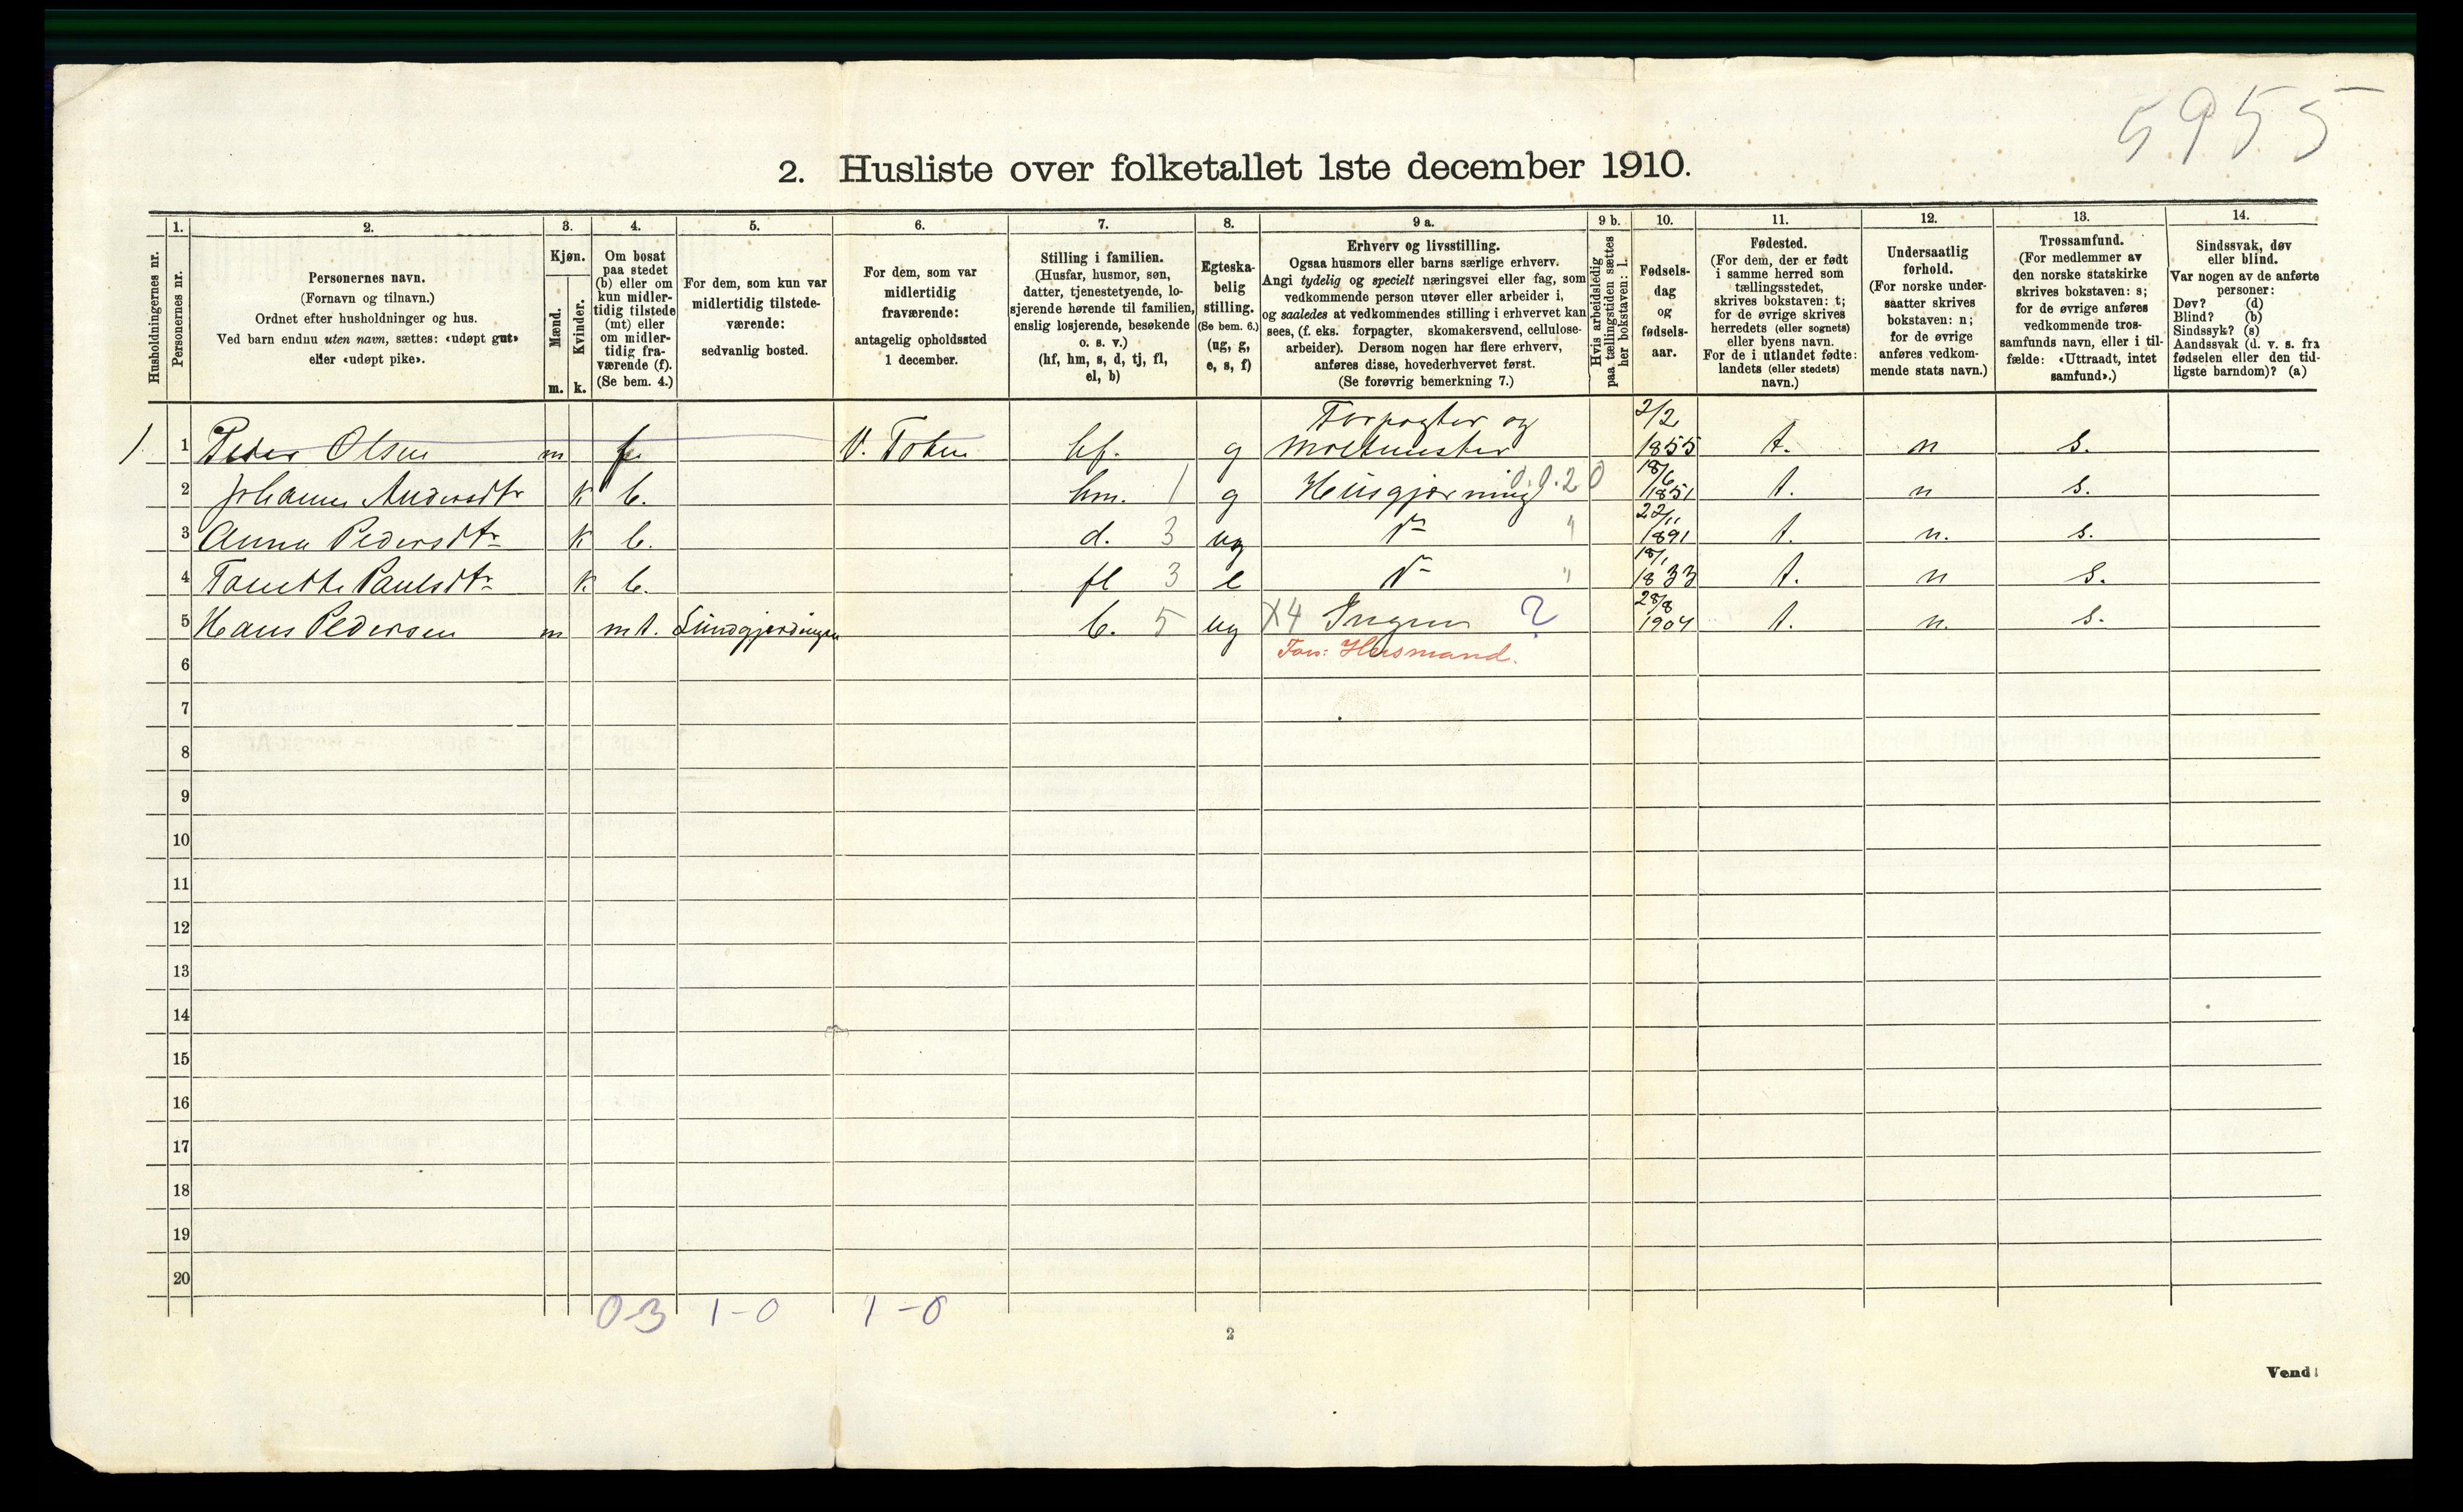 5955
2. Husliste over folketallet 1ste december 1910.
Husholdningernes nr.
1.
Personernes nr.
2.
Personernes navn.
(Fornavn og tilnavn.)
Ordnet efter husholdninger og hus.
Ved barn endnu uten navn, sættes: «udøpt gut»
eller «udøpt pike».
3.
Kjøn.
Mænd.
m.
Kvinder.
k.
4.
Om bosat
paa stedet
(b) eller om
kun midler-
tidig tilstede
(mt) eller
om midler-
tidig fra-
værende (f).
(Se bem. 4.)
5.
For dem, som kun var
midlertidig tilstede-
værende:
sedvanlig bosted.
6.
For dem, som var
midlertidig
fraværende:
antagelig opholdssted
1 december.
7.
Stilling i familien.
(Husfar, husmor, søn,
datter, tjenestetyende, lo-
sjerende hørende til familien,
enslig losjerende, besøkende
o. s. v.)
(hf, hm, s, d, tj, fl,
el, b)
8.
Egteska-
belig
stilling.
(Se bem. 6.)
(ug, g,
e, s, f)
9 a.
Erhverv og livsstilling.
Ogsaa husmors eller barns særlige erhverv.
Angi tydelig og specielt næringsvei eller fag, som
vedkommende person utøver eller arbeider i,
og saaledes at vedkommendes stilling i erhvervet kan
sees, (f. eks. forpagter, skomakersvend, cellulose-
arbeider). Dersom nogen har flere erhverv,
anføres disse, hovederhvervet først.
(Se forøvrig bemerkning 7.)
9 b.
Hvis arbeidsledig
paa tællingstiden sættes
her bokstaven: l.
10.
Fødsels-
dag
og
fødsels-
aar.
11.
Fødested.
(For dem, der er født
i samme herred som
tællingsstedet,
skrives bokstaven: t;
for de øvrige skrives
herredets (eller sognets)
eller byens navn.
For de i utlandet fødte:
landets (eller stedets)
navn.)
12.
Undersaatlig
forhold.
(For norske under-
saatter skrives
bokstaven: n;
for de øvrige
anføres vedkom-
mende stats navn.)
13.
Trossamfund.
(For medlemmer av
den norske statskirke
skrives bokstaven: s;
for de øvrige anføres
vedkommende tros-
samfunds navn, eller i til-
fælde: «Uttraadt, intet
samfund».)
14.
Sindssvak, døv
eller blind.
Var nogen av de anførte
personer:
Døv? (d)
Blind? (b)
Sindssyk? (s)
Aandssvak (d. v. s. fra
fødselen eller den tid-
ligste barndom)? (a)
1. 1 Peder Olsen m f. V. Toten hf. g Forpagter og 2/2
1855 t. n s.
2 Johanne Andersdtr k b. hm. 1 g Husgjerning 0.0.20 18/6
1851 t. n s.
3 Anna Pedersdtr k b. d. 3 ug do " 22/11
1891 t. n. s.
4 Paulsdtr k b. fl 3 e do " 18/1
1833 t. n s.
5 Hans Pedersen m mt. b. 5 ug X4 Ingen ? 28/8
1904 t. n. s.
Fars: Husmand.
6
7
8
9
10
11
12
13
14
15
16
17
18
19
20
0-3 1-0 1-0
2
Vend!